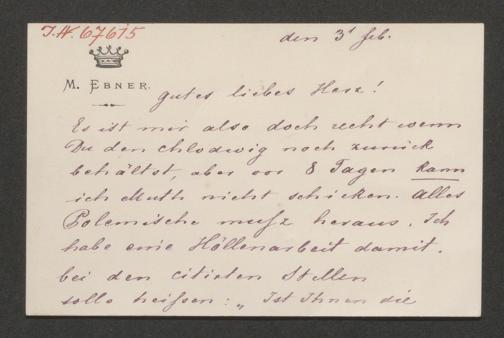 J.N. 67615
den 3ᵗ feb.
M. EBNER.
gutes liebes Herz!
Es ist mir also doch recht wenn
Du den Chlodwig noch zurück
behältst, aber vor 8 Tagen kann
ich Muth nicht schicken. Alles
Polemische mußz heraus. Ich
habe eine Höllenarbeit damit.
bei den citirten Stellen
solls heißen: „ Ist Ihnen die